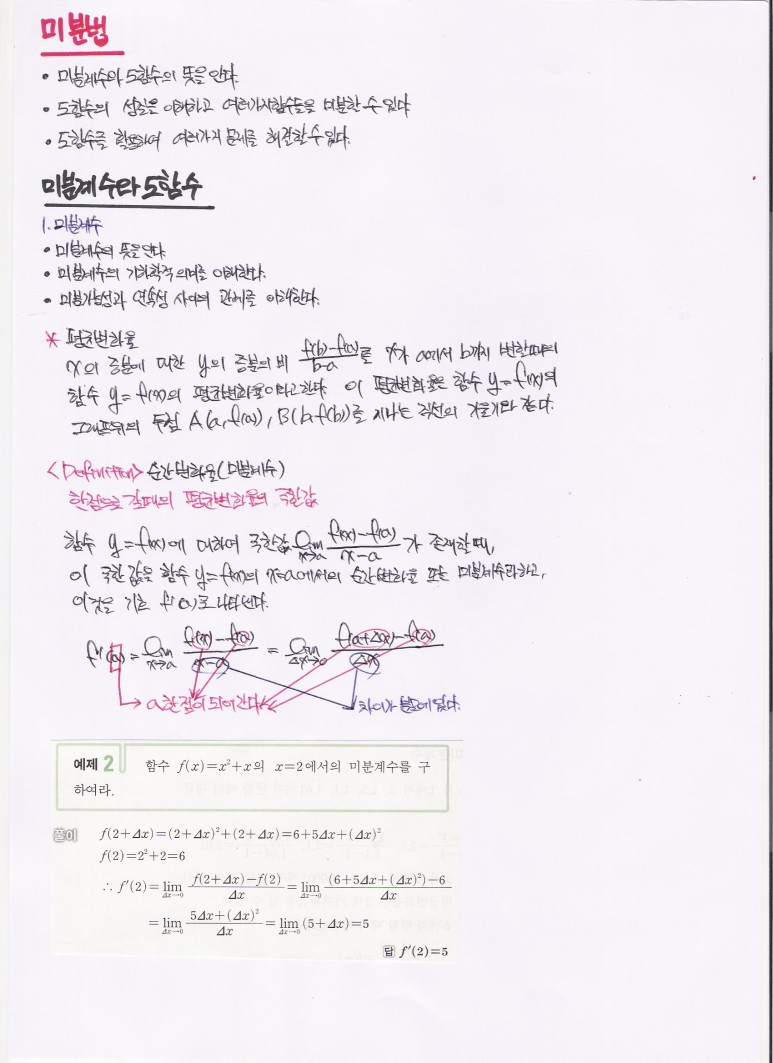 미분법
• 미분계수와 도함수의 뜻을 안다.
• 도함수의 성질을 이해하고 여러가지함수들을 미분할 수 있다
• 도함수를 활용하여 여러가지 문제를 해결할 수 있다.
미분계수와 도함수
1. 미분계수
• 미분계수의 뜻을 안다.
• 미분계수의 기하학적 의미를 이해한다.
• 미분가능성과 연속성 사이의 관계를 이해한다.
* 평균변화율
x의 증분에 대한 y의 증분의 비 \frac{f(b)-f(a)}{b-a}를 x가 a에서 b까지 변할때의
함수 y=f(x)의 평균변화율이라고 한다. 이 평균변화율은 함수 y=f(x)의
그래프위의 두점 A(a, f(a)), B(b, f(b))를 지나는 직선의 기울기와 같다.
<Definition> 순간변화율(미분계수)
한점으로 갈때의 평균변화율의 극한값
함수 y=f(x)에 대하여 극한값 \lim_{x→a} \frac{f(x)-f(a)}{x-a}가 존재할 때,
이 극한값을 함수 y=f(x)의 x=a에서의 순간변화율 또는 미분계수라하고,
이것을 기호 f'(a)로 나타낸다.
f'(a) = \lim_{x→a} \frac{f(x)-f(a)}{x-a} = \lim_{Δx→0} \frac{f(a+Δx)-f(a)}{Δx}
a 한점이 되어간다 차이가 분모에 있다.
예제 2 함수 f(x)=x²+x의 x=2에서의 미분계수를 구
하여라.
풀이 f(2+Δx)=(2+Δx)²+(2+Δx)=6+5Δx+(Δx)²
f(2)=2²+2=6
∴ f'(2)=\lim_{Δx→0} \frac{f(2+Δx)-f(2)}{Δx}=\lim_{Δx→0} \frac{(6+5Δx+(Δx)²)-6}{Δx}
=\lim_{Δx→0} \frac{5Δx+(Δx)²}{Δx}=\lim_{Δx→0} (5+Δx)=5
답 f'(2)=5